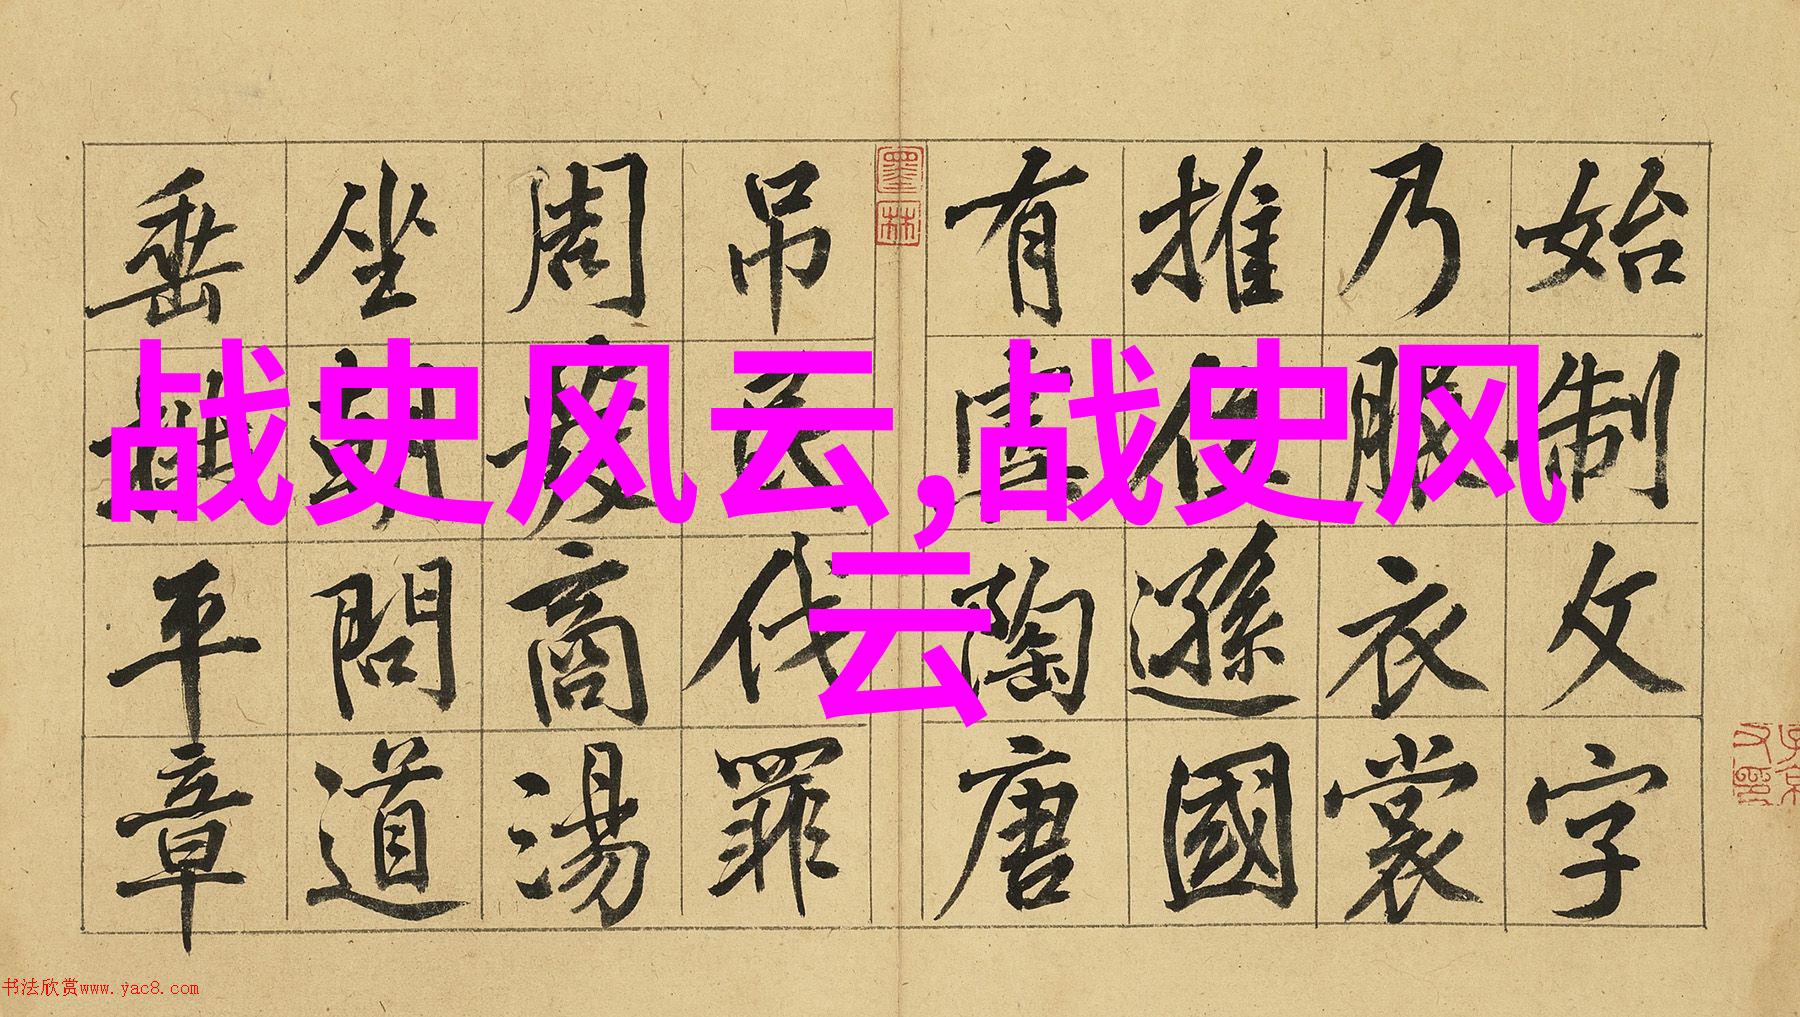 战史风云,战史风
云
始制文字
乃服衣裳
推位遜國
有虞陶唐
吊民伐罪
周發商湯
坐朝問道
垂拱平章
墨林
书法欣赏www.yac8.com